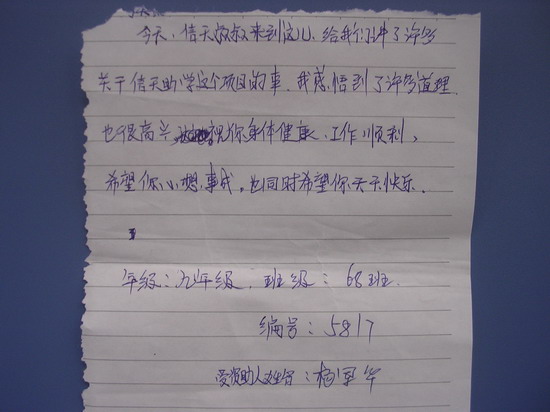 今天，信天叔叔来到这儿，给我们讲了许多
关于信天助学这个项目的事，我感悟到了许多道理.
也很高兴 祝你身体健康，工作顺利，
希望你心想事成。也同时希望你天天快乐.
年级：九年级. 班级：68班.
编号：5817
受资助人姓名：杨军华